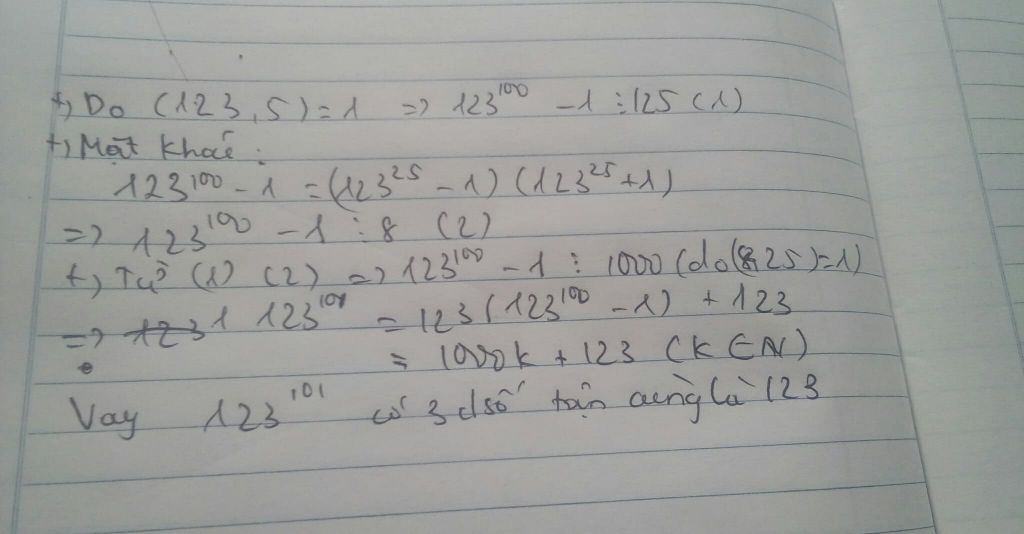 +) Do (123,5)=1 => 123^100 - 1 ⋮ 125 (1)
+) Mặt khác :
123^100 - 1 = (123^25 - 1) (123^25 + 1)
=> 123^100 - 1 ⋮ 8 (2)
+) Từ (1) (2) => 123^100 - 1 ⋮ 1000 (do (8,25)=1)
=> 123^101 = 123(123^100 - 1) + 123
= 1000k + 123 (K ∈ N)
Vay 123^101 có 3 số tận cùng là 123